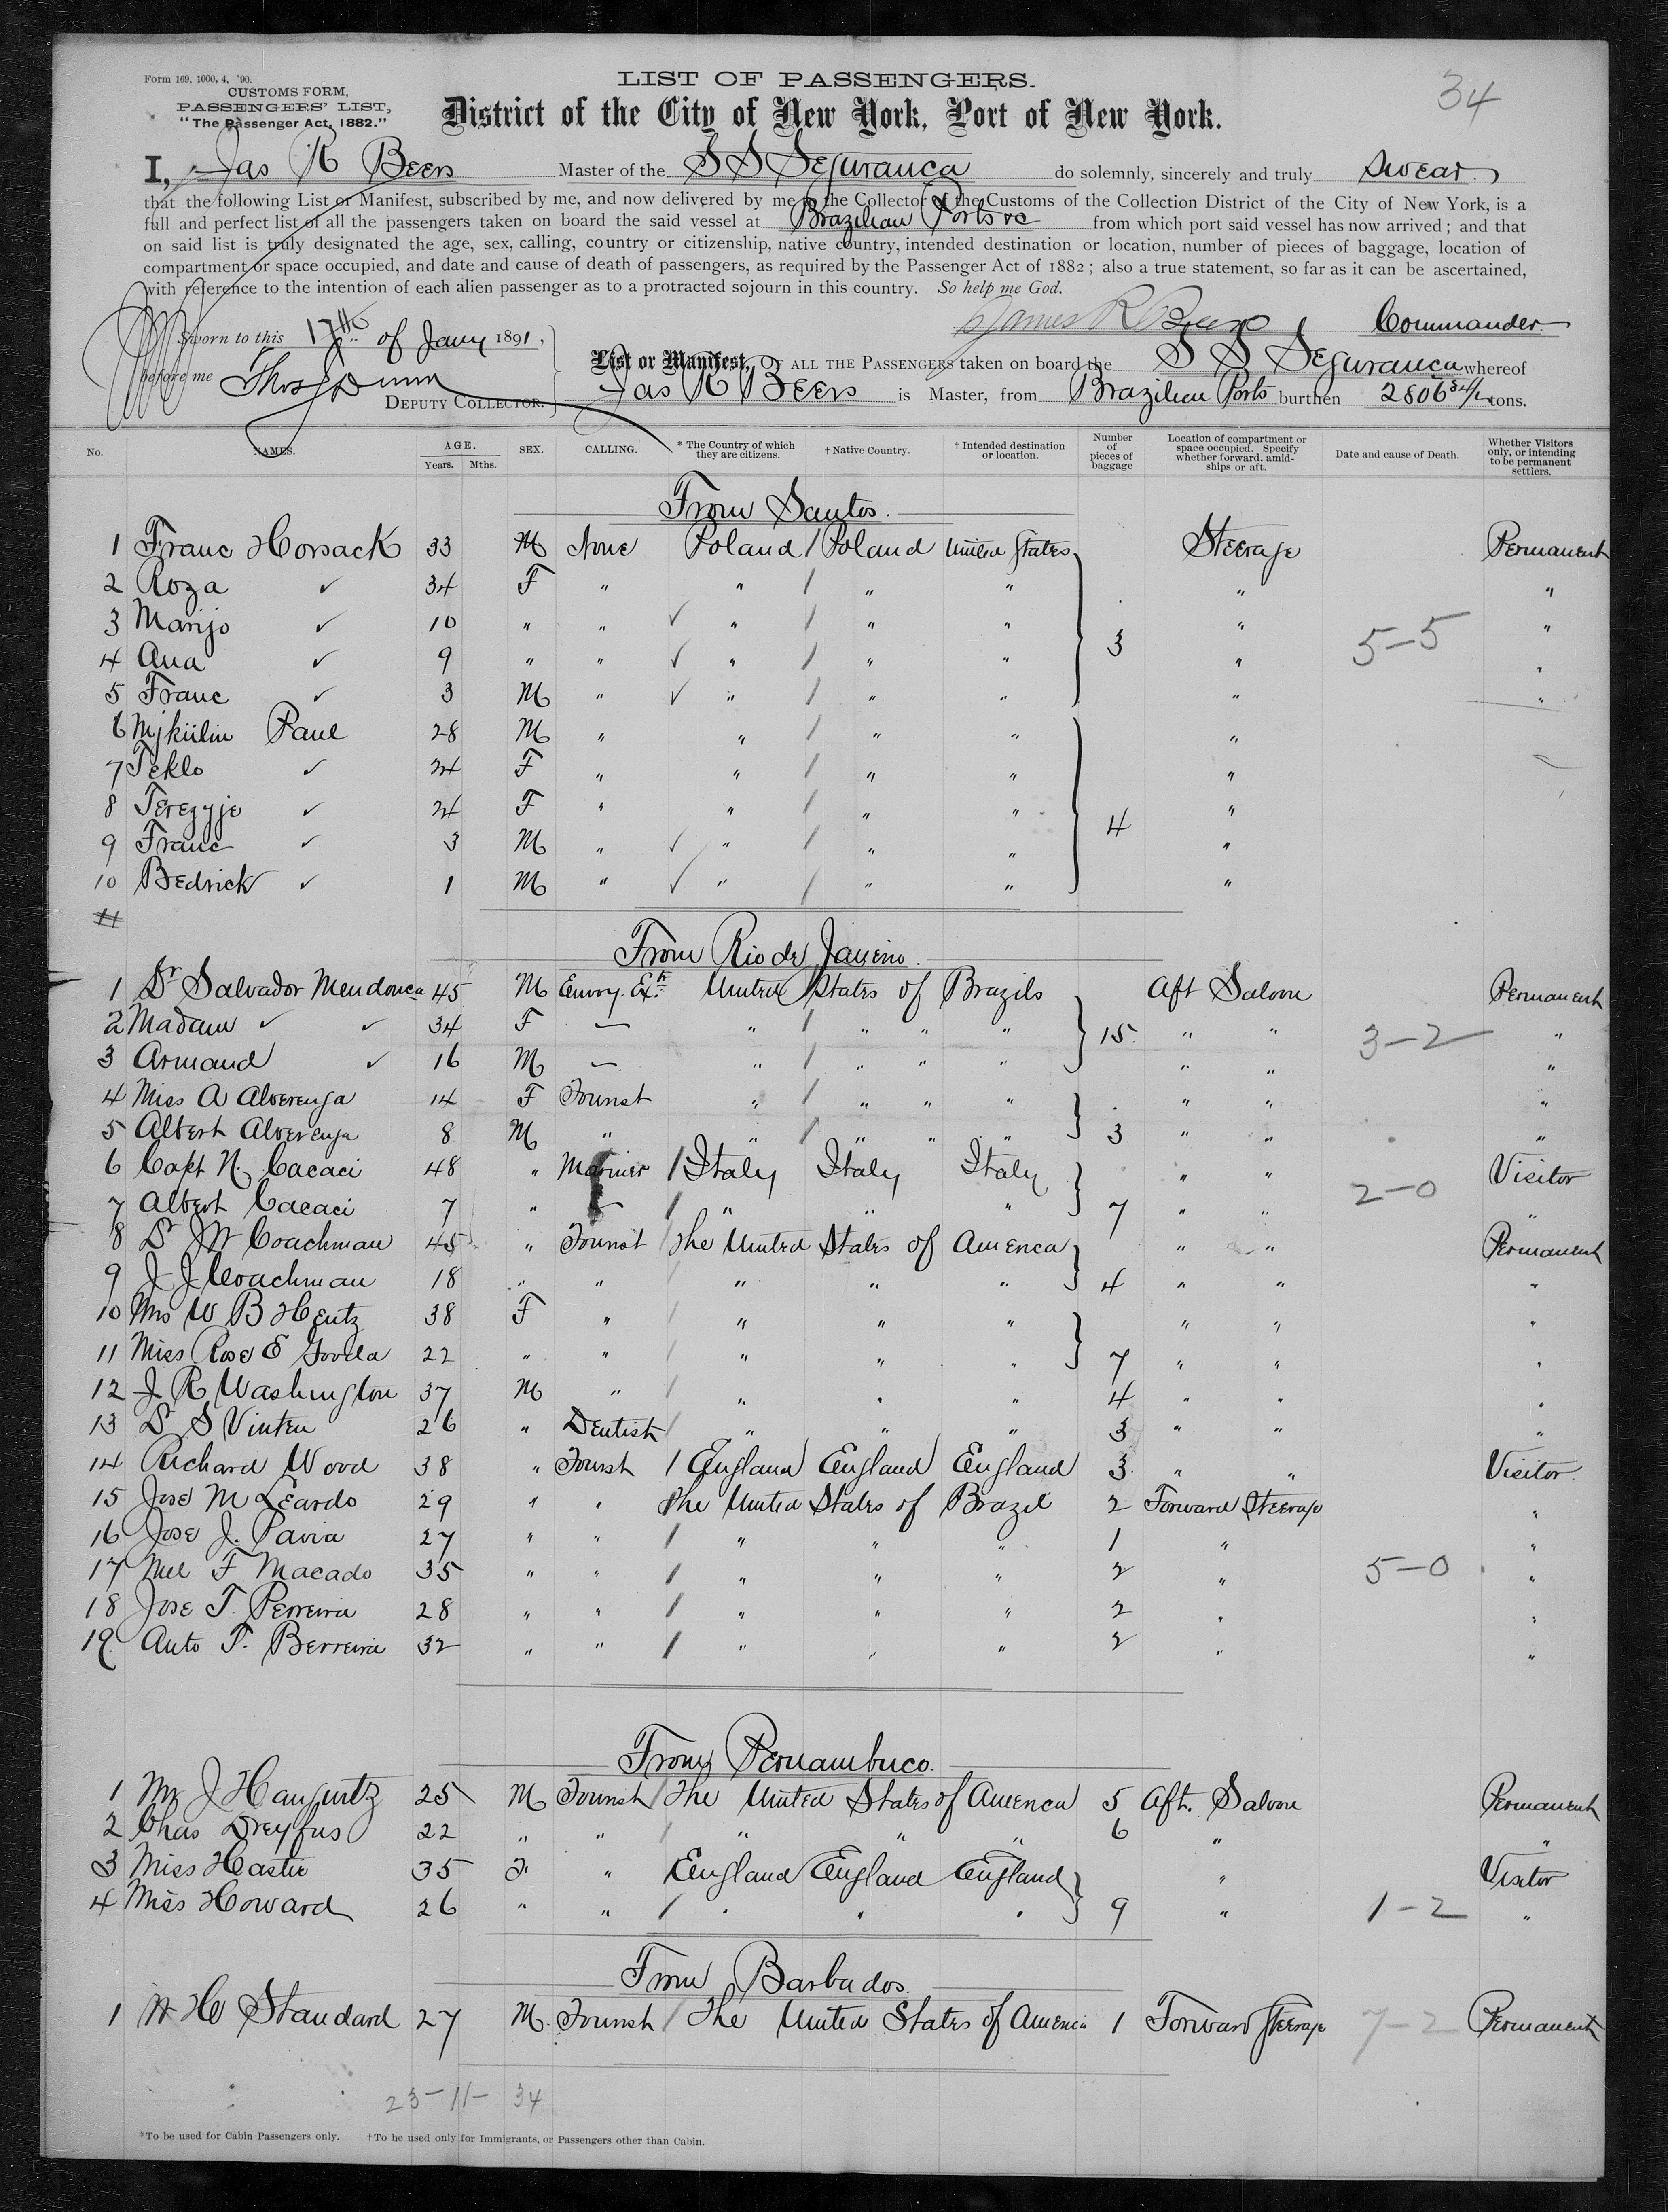 Form 169, 1000, 4, '90.
CUSTOMS FORM,
PASSENGERS' LIST,
"The Passenger Act, 1882."
LIST OF PASSENGERS.
34
District of the City of New York, Port of New York.
I, Jas R Beers Master of the S S Seguranca do solemnly, sincerely and truly swear
that the following List or Manifest, subscribed by me, and now delivered by me to the Collector of the Customs of the Collection District of the City of New York, is a
full and perfect list of all the passengers taken on board the said vessel at Brazilian Ports &c from which port said vessel has now arrived; and that
on said list is truly designated the age, sex, calling, country or citizenship, native country, intended destination or location, number of pieces of baggage, location of
compartment or space occupied, and date and cause of death of passengers, as required by the Passenger Act of 1882; also a true statement, so far as it can be ascertained,
with reference to the intention of each alien passenger as to a protracted sojourn in this country. So help me God.
James R Beers, Commander
Sworn to this 17th of Jany 1891,
before me Thos J Dunn
DEPUTY COLLECTOR.
List or Manifest, OF ALL THE PASSENGERS taken on board the S S Seguranca whereof
Jas R Beers is Master, from Brazilian Ports burthen 2806 tons.
No. NAMES. AGE. Years. Mths. SEX. CALLING. * The Country of which they are citizens. † Native Country. † Intended destination or location. Number of pieces of baggage Location of compartment or space occupied. Specify whether forward, amidships or aft. Date and cause of Death. Whether Visitors only, or intending to be permanent settlers.
From Santos.
1 Franc Horsack 33 M None Poland / Poland United States Steerage Permanent
2 Roza ✓ 34 F " " / " " " "
3 Marijo ✓ 10 " " ✓ " / " " 3 " 5-5 "
4 Ana ✓ 9 " " ✓ " / " " " "
5 Franc ✓ 3 M " ✓ " / " " " "
6 Mjkiilin Paul 28 M " " / " " "
7 Teklo ✓ 24 F " " / " " "
8 Terezyje ✓ 24 F " " / " " 4 "
9 Franc ✓ 3 M " ✓ " / " " "
10 Bedrick ✓ 1 M " ✓ " / " " "
11
From Rio de Janeiro.
1 Dr Salvador Mendonca 45 M Envoy. Ex. United States of Brazils Aft Saloon Permanent
2 Madam ✓ ✓ 34 F — " / " " " 15 " " 3-2 "
3 Armand ✓ 16 M — " / " " " " " "
4 Miss A Alverenga 14 F Tourist " / " " " " " "
5 Albert Alverenga 8 M " " / " " " 3 " " "
6 Capt N. Cacaci 48 " Mariner / Italy Italy Italy " " Visitor
7 Albert Cacaci 7 " — / " " " 7 " " 2-0 "
8 Dr J W Coachman 45 " Tourist / The United States of America " " Permanent
9 J J Coachman 18 " " / " " " 4 " " "
10 Mrs W B Hentz 38 F " / " " " " " "
11 Miss Rose E Goods 22 " " / " " " 7 " " "
12 J R Washington 37 M " / " " " 4 " " "
13 Dr S Vinten 26 " Dentist / " " " 3 " " "
14 Richard Wood 38 " Tourist / England England England 3 " " Visitor.
15 Jose M Leardo 29 " " The United States of Brazil 2 Forward Steerage "
16 Jose J. Pavia 27 " " / " " " 1 " "
17 Mel F Macado 35 " " / " " " 2 " 5-0 "
18 Jose T. Perreira 28 " " / " " " 2 " "
19. Anto F. Berreira 32 " " / " " " 2 " "
From Pernambuco.
1 Mr J Haugwitz 25 M Tourist / The United States of America 5 Aft. Saloon Permanent
2 Chas Dreyfus 22 " " / " " " 6 " "
3 Miss Hastie 35 F " England / England England " Visitor
4 Miss Howard 26 " " / " " " 9 " 1-2 "
From Barbados.
1 W H Standard 27 M. Tourist / The United States of America 1 Forward Steerage 7-2 Permanent
23-11- 34
*To be used for Cabin Passengers only. †To be used only for Immigrants, or Passengers other than Cabin.